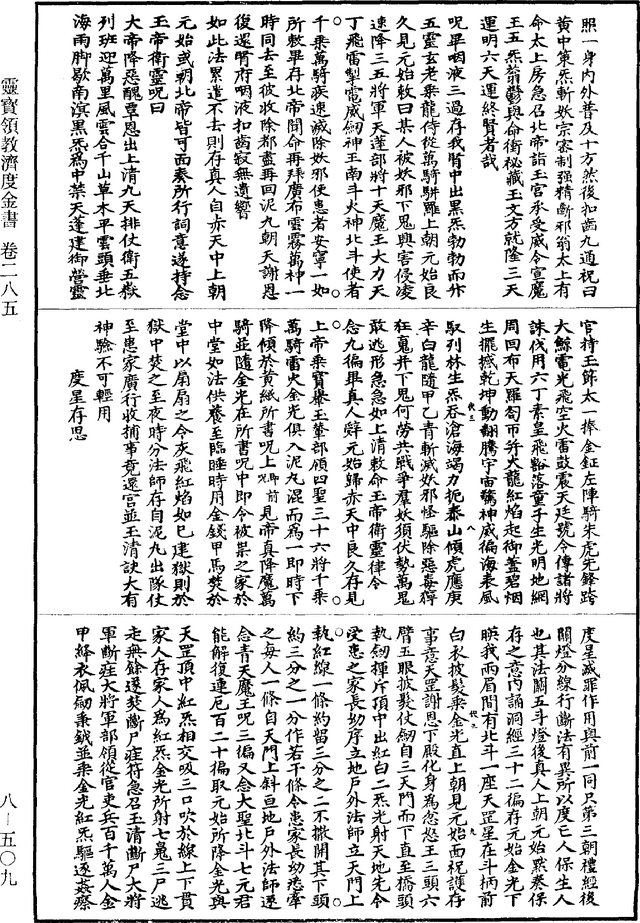 照一身內外普及十方然後扣齒九通祝曰
黃中策炁斬妖宗密制強精斷邪翁太上有
命太上房急召北帝詣玉宮承受威令宣魔
王五炁蓊鬱與命衛秘藏玉文方就隆三天
運明六天運終賢者哉
呪畢咽液三過存我腎中出黑炁勃勃而升
五靈玄老乘龍侍從萬騎駢羅上朝元始良
久見元始敕曰某人被妖邪下鬼興害侵凌
速降三五將軍天蓬部將十天魔王大力天
丁飛雷掣電威劒神王南斗火神北斗使者
千乘萬騎疾速滅除妖邪便患者安寧一如
所敕畢存北帝聞命再拜廣布雲霧萬神一
時同去至彼收除都盡再回泥九朝天謝恩
復還腎府咽液扣齒寂無遺響
如此法累造不去則存真人自赤天中上朝
元始或朝北帝皆可面奏所行詞意遂持念
玉帝衛靈呪曰
大帝降惡醜覃恩出上清九天排仗衛五嶽
列班迎萬里風雲合千山草木平雲頭垂北
海雨脚歇南溟黑炁為中禁天蓬建御營靈
官持玉節太一捧金鉦左陣騎朱虎先鋒跨
大鯨電光飛空火雷鼓震天廷號令傳諸將
誅伐用六丁素皇飛豁落童子生光明地網
周回布天羅匌帀并火龍紅焰起御蓋碧烟
生擺撼乾坤動翻騰宇宙驚神威徧海表風
馭列林生炁吞滄海竭力扼泰山傾虎應庚
辛白龍隨甲乙青斬滅妖邪怪驅除惡毒猂
狂鬼并下鬼何勞共戰爭羣妖須伏勢萬鬼
敢逃形急急如上清敕命玉帝衛靈律令
念九徧畢真人辭元始歸赤天中良久存見
上帝乘寶轝玉輦部領四聖三十六將千乘
萬騎雷火金光俱入泥九混而為一即時下
降傾於黃紙所書呪上呪即前見帝真降魔萬
騎並隨金光在所書呪中即令被祟之家於
中堂如法供養至臨睡時用金錢甲馬焚於
堂中以扇扇之令灰飛紅焰如已建獄則於
獄中焚之至夜時分法師存自泥九出隊仗
至患家廣行收捕事竟還宮並玉清訣大有
神驗不可輕用
度星存思
度星滅罪作用與前一同只第三朝禮經後
關燈分線行斷法有異所以度亡人保生人
也其法關五斗燈後真人上朝元始默奏保
存之意內誦洞經三十二徧存元始金光下
暎我兩眉間有北斗一座天罡星在斗柄前
白衣披髮乘金光直上朝見元始面祝護存
事意天罡謝恩下殿化身為忿怒王三頭六
臂五眼披髮仗劒自三天門而下直至橋頭
執劒揮斥頂中出紅白二炁光射天地先令
受患之家長幼序立地戶外法師立天門上
執紅線一條約留三分之二不撒開其下頭
約三分之一分作若干條令患家長幼悉牽
之每人一條自天門上斜亘地戶外法師遂
念青天魔王呪三徧又念大聖北斗七元君
能解復連厄百二十徧取元始所降金光與
天罡頂中紅炁相交吸三口吹於線上下貫
家人存家人為紅炁金光所射七鬼三尸逃
走無餘遂焚斷尸疰符急召玉清斷尸大將
軍斷疰大將軍部領從官吏兵百千萬人金
甲絳衣佩劒秉鉞並乘金光紅炁驅逐裁瘵
靈寶領教濟度金書 卷二八五
八─五〇九